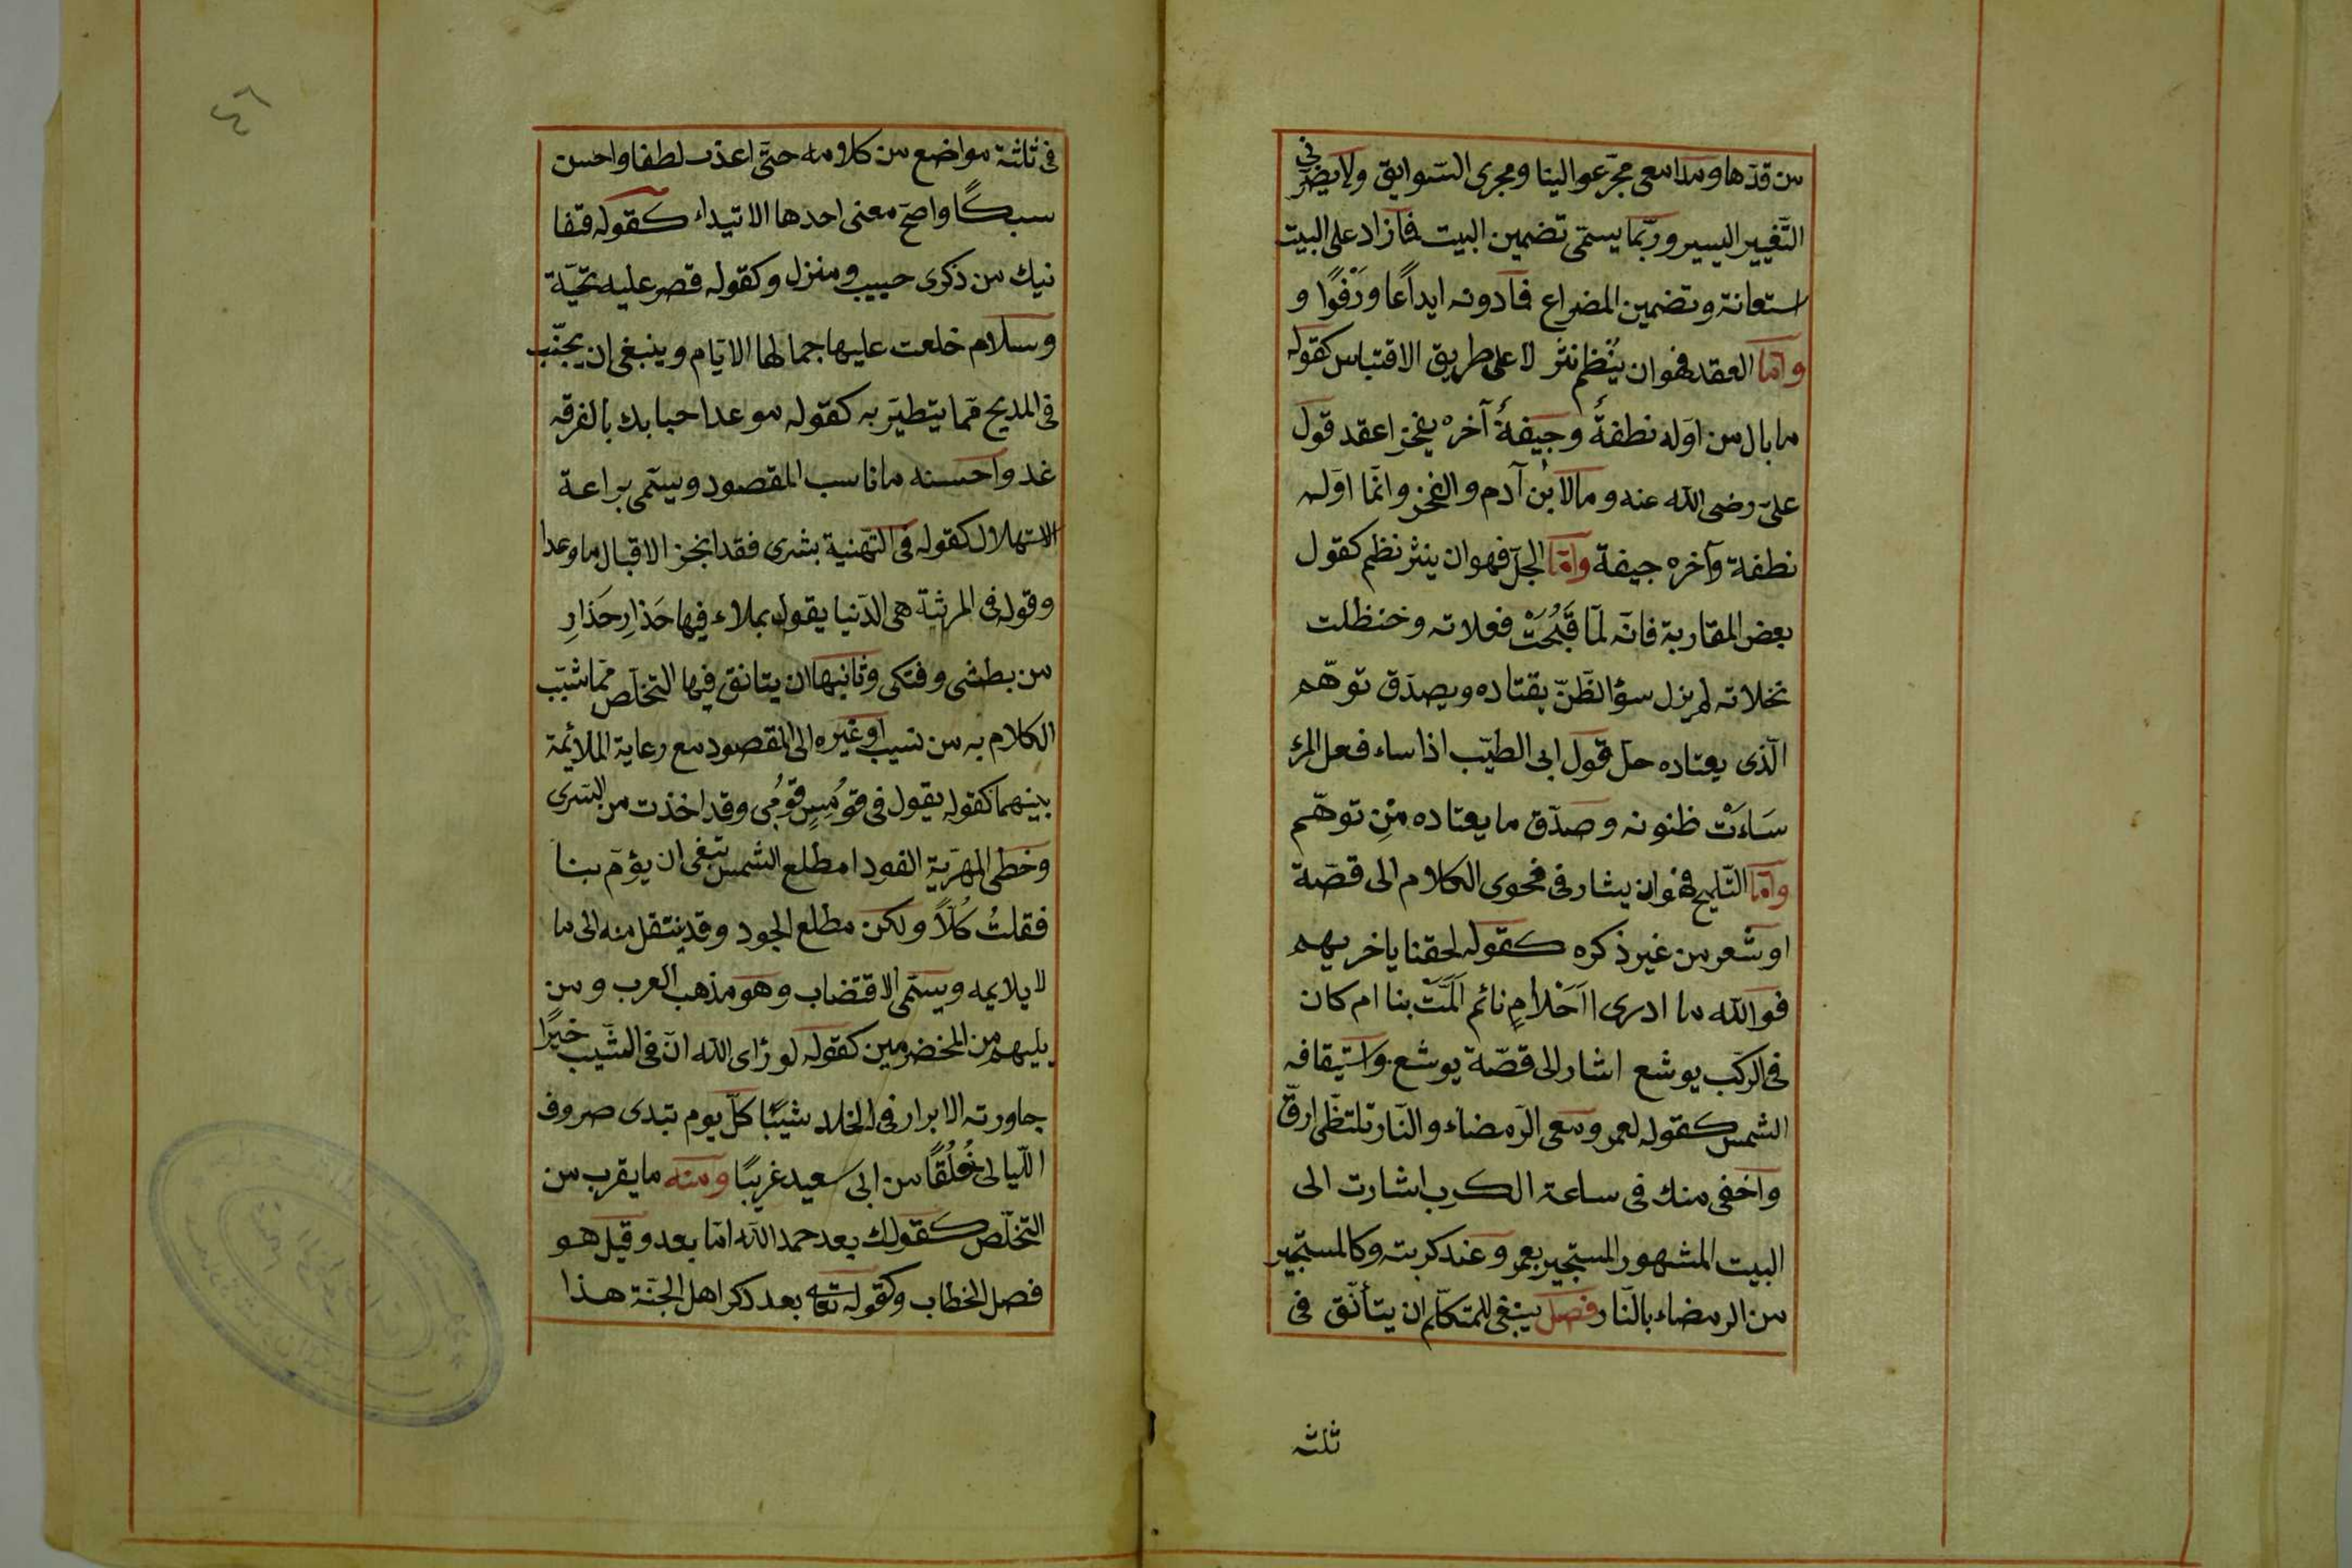 من قدّها ومدامعى مجرّ عوالينا ومجرى السّوابق ولا يضرّ فى
التّغيير اليسير وربّما يسمّى تضمين البيت فما زاد على البيت
استعانة وتضمين المضراع فما دونه ايداعًا ورَفْوًا و
وامّا العقد فهو ان يُنْظم نثر لا على طريق الاقتباس كقوله
ما بال من اوّله نطفةٌ وجيفةٌ آخره يفخر اعقد قول
علىّ رضى الله عنه وما لابن آدم والفخر وانّما اوّله
نطفة وآخره جيفة وامّا الحلّ فهو ان ينثر نظم كقول
بعض المقاربة فانّه لمّا قَبُحَتْ فعلاته وخنظلت
نخلاته لم يزل سؤ الظّنّ يقتاده ويصدّق توهّمه
الّذى يعتاده حلّ قول ابى الطيّب اذا ساء فعل المرء
سَاءَتْ ظنونه وصدّق ما يعتاده مِنْ توهّم
وامّا التّلميح فهو ان يشار فى فحوى الكلام الى قصّة
او شعر من غير ذكره كقوله لحقنا باخريهم
فوالله ما ادرى ااَحْلامِ نائم اَلَمَّتْ بنا ام كان
فى الركب يوشع اشار الى قصّة يوشع واستيقافه
الشمس كقوله لعمرو مع الرّمضاء والنّار تلتظّى ارقّ
واخفى منك فى ساعة الكرب اشارت الى
البيت المشهور المستجير بعمرو عند كربته وكالمستجير
من الرمضاء بالنّار فصل ينبغى للمتكلّم ان يتأنّق فى
ثلثه
٤٦
فى ثلثة مواضع من كلامه حتّى اعذب لطفا واحسن
سبكًا واصحّ معنى احدها الابتداء كقوله قفا
نبك من ذكرى حبيب ومنزل وكقوله قصر عليه تحيّة
وسلام خلعت عليها جمالها الايّام وينبغى ان يجنّب
فى المديح ممّا يتطيّر به كقوله موعد احبابك بالفرقه
غد واحسنه ما ناسب المقصود ويسمّى براعة
الاستهلال كقوله فى التّهنية بشرى فقد انجز الاقبال ما وعدا
وقوله فى المرثية هى الدّنيا يقول بملاء فيها حَذارِ حَذارِ
من بطشى وفتكى وثانيها ان يتانق فيها التخلّص ممّا شبّب
الكلام به من نسيب او غيره الى المقصود مع رعاية الملائمة
بينهما كقوله يقول فى قومُسٍ قومى وقد اخذت من السّرى
وخطى المهريّة القود امطلع الشمس تبغى ان يؤمّ بنا
فقلتُ كُلّاً ولكن مطلع الجود وقد ينتقل منه الى ما
لا يلايمه ويسمّى الاقتضاب وهو مذهب العرب ومن
يليهم من المخضرمين كقوله لو رَاى الله انّ فى الشّيب خيرًا
جاورته الابرار فى الخلد شيبًا كلّ يوم تبدى صروف
اللّيالى خُلُقًا من ابى سعيد غريبًا ومنه ما يقرب من
التّخلّص كقولك بعد حمد الله امّا بعد وقيل هو
فصل الخطاب وكقوله تعالى بعد ذكر اهل الجنّة هذا